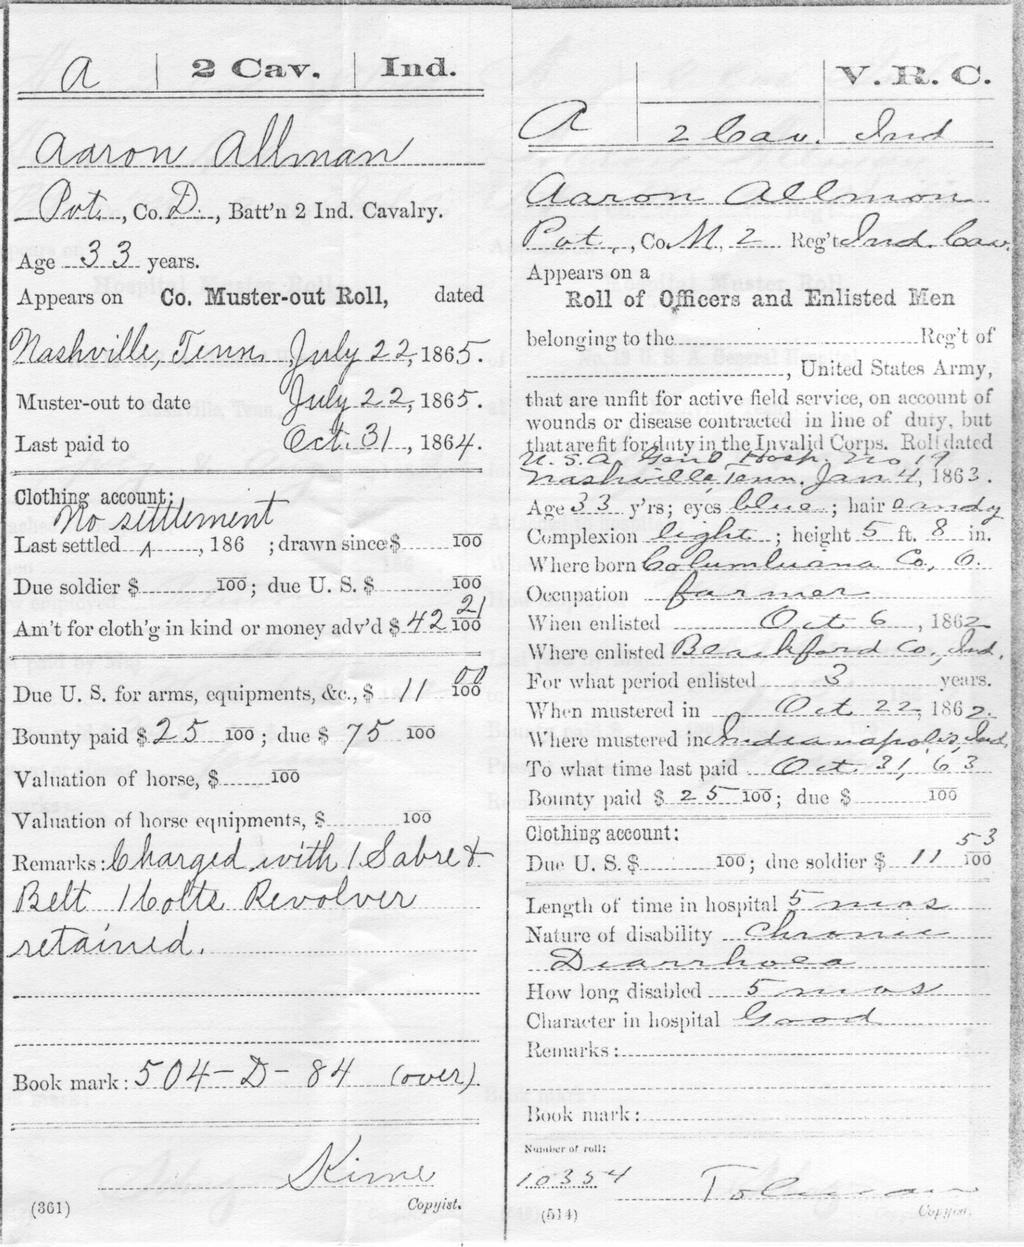 A | 2 Cav. | Ind.
Aaron Allman
Pvt., Co. D, Batt'n 2 Ind. Cavalry.
Age 33 years.
Appears on Co. Muster-out Roll, dated
Nashville, Tenn, July 22, 1865.
Muster-out to date July 22, 1865.
Last paid to Oct. 31, 1864.
Clothing account:
No settlement
Last settled , 186 ; drawn since $ 100
Due soldier $ 100; due U. S. $ 100
Am't for cloth'g in kind or money adv'd $ 42 21/100
Due U. S. for arms, equipments, &c., $ 11 00/100
Bounty paid $ 25 100; due $ 75 100
Valuation of horse, $ 100
Valuation of horse equipments, $ 100
Remarks: Charged with 1 Sabre &
Belt 1 Colts Revolver
retained.
Book mark: 504-D-84 (over)
Kime
(361) Copyist.
V. R. C.
A | 2 Cav. Ind
Aaron Allmon
Pvt, Co. M, 2 Reg't Ind. Cav.
Appears on a
Roll of Officers and Enlisted Men
belonging to the Reg't of
, United States Army,
that are unfit for active field service, on account of
wounds or disease contracted in line of duty, but
that are fit for duty in the Invalid Corps. Roll dated
U. S. A. Gen'l Hosp. No. 19
Nashville, Tenn. Jan 4, 1863.
Age 33 y'rs; eyes blue; hair sandy
Complexion light; height 5 ft. 8 in.
Where born Columbuana Co, O.
Occupation farmer
When enlisted Oct 6, 1862
Where enlisted Blackford Co., Ind.
For what period enlisted 3 years.
When mustered in Oct 22, 1862.
Where mustered in Indianapolis, Ind,
To what time last paid Oct. 31, 63
Bounty paid $ 25 100; due $ 100
Clothing account:
Due U. S. $ 100; due soldier $ 11 53/100
Length of time in hospital 5 mos
Nature of disability Chronic
Diarrhoea
How long disabled 5 mos
Character in hospital Good
Remarks:
Book mark:
Number of roll:
10354
(514) Copyist.